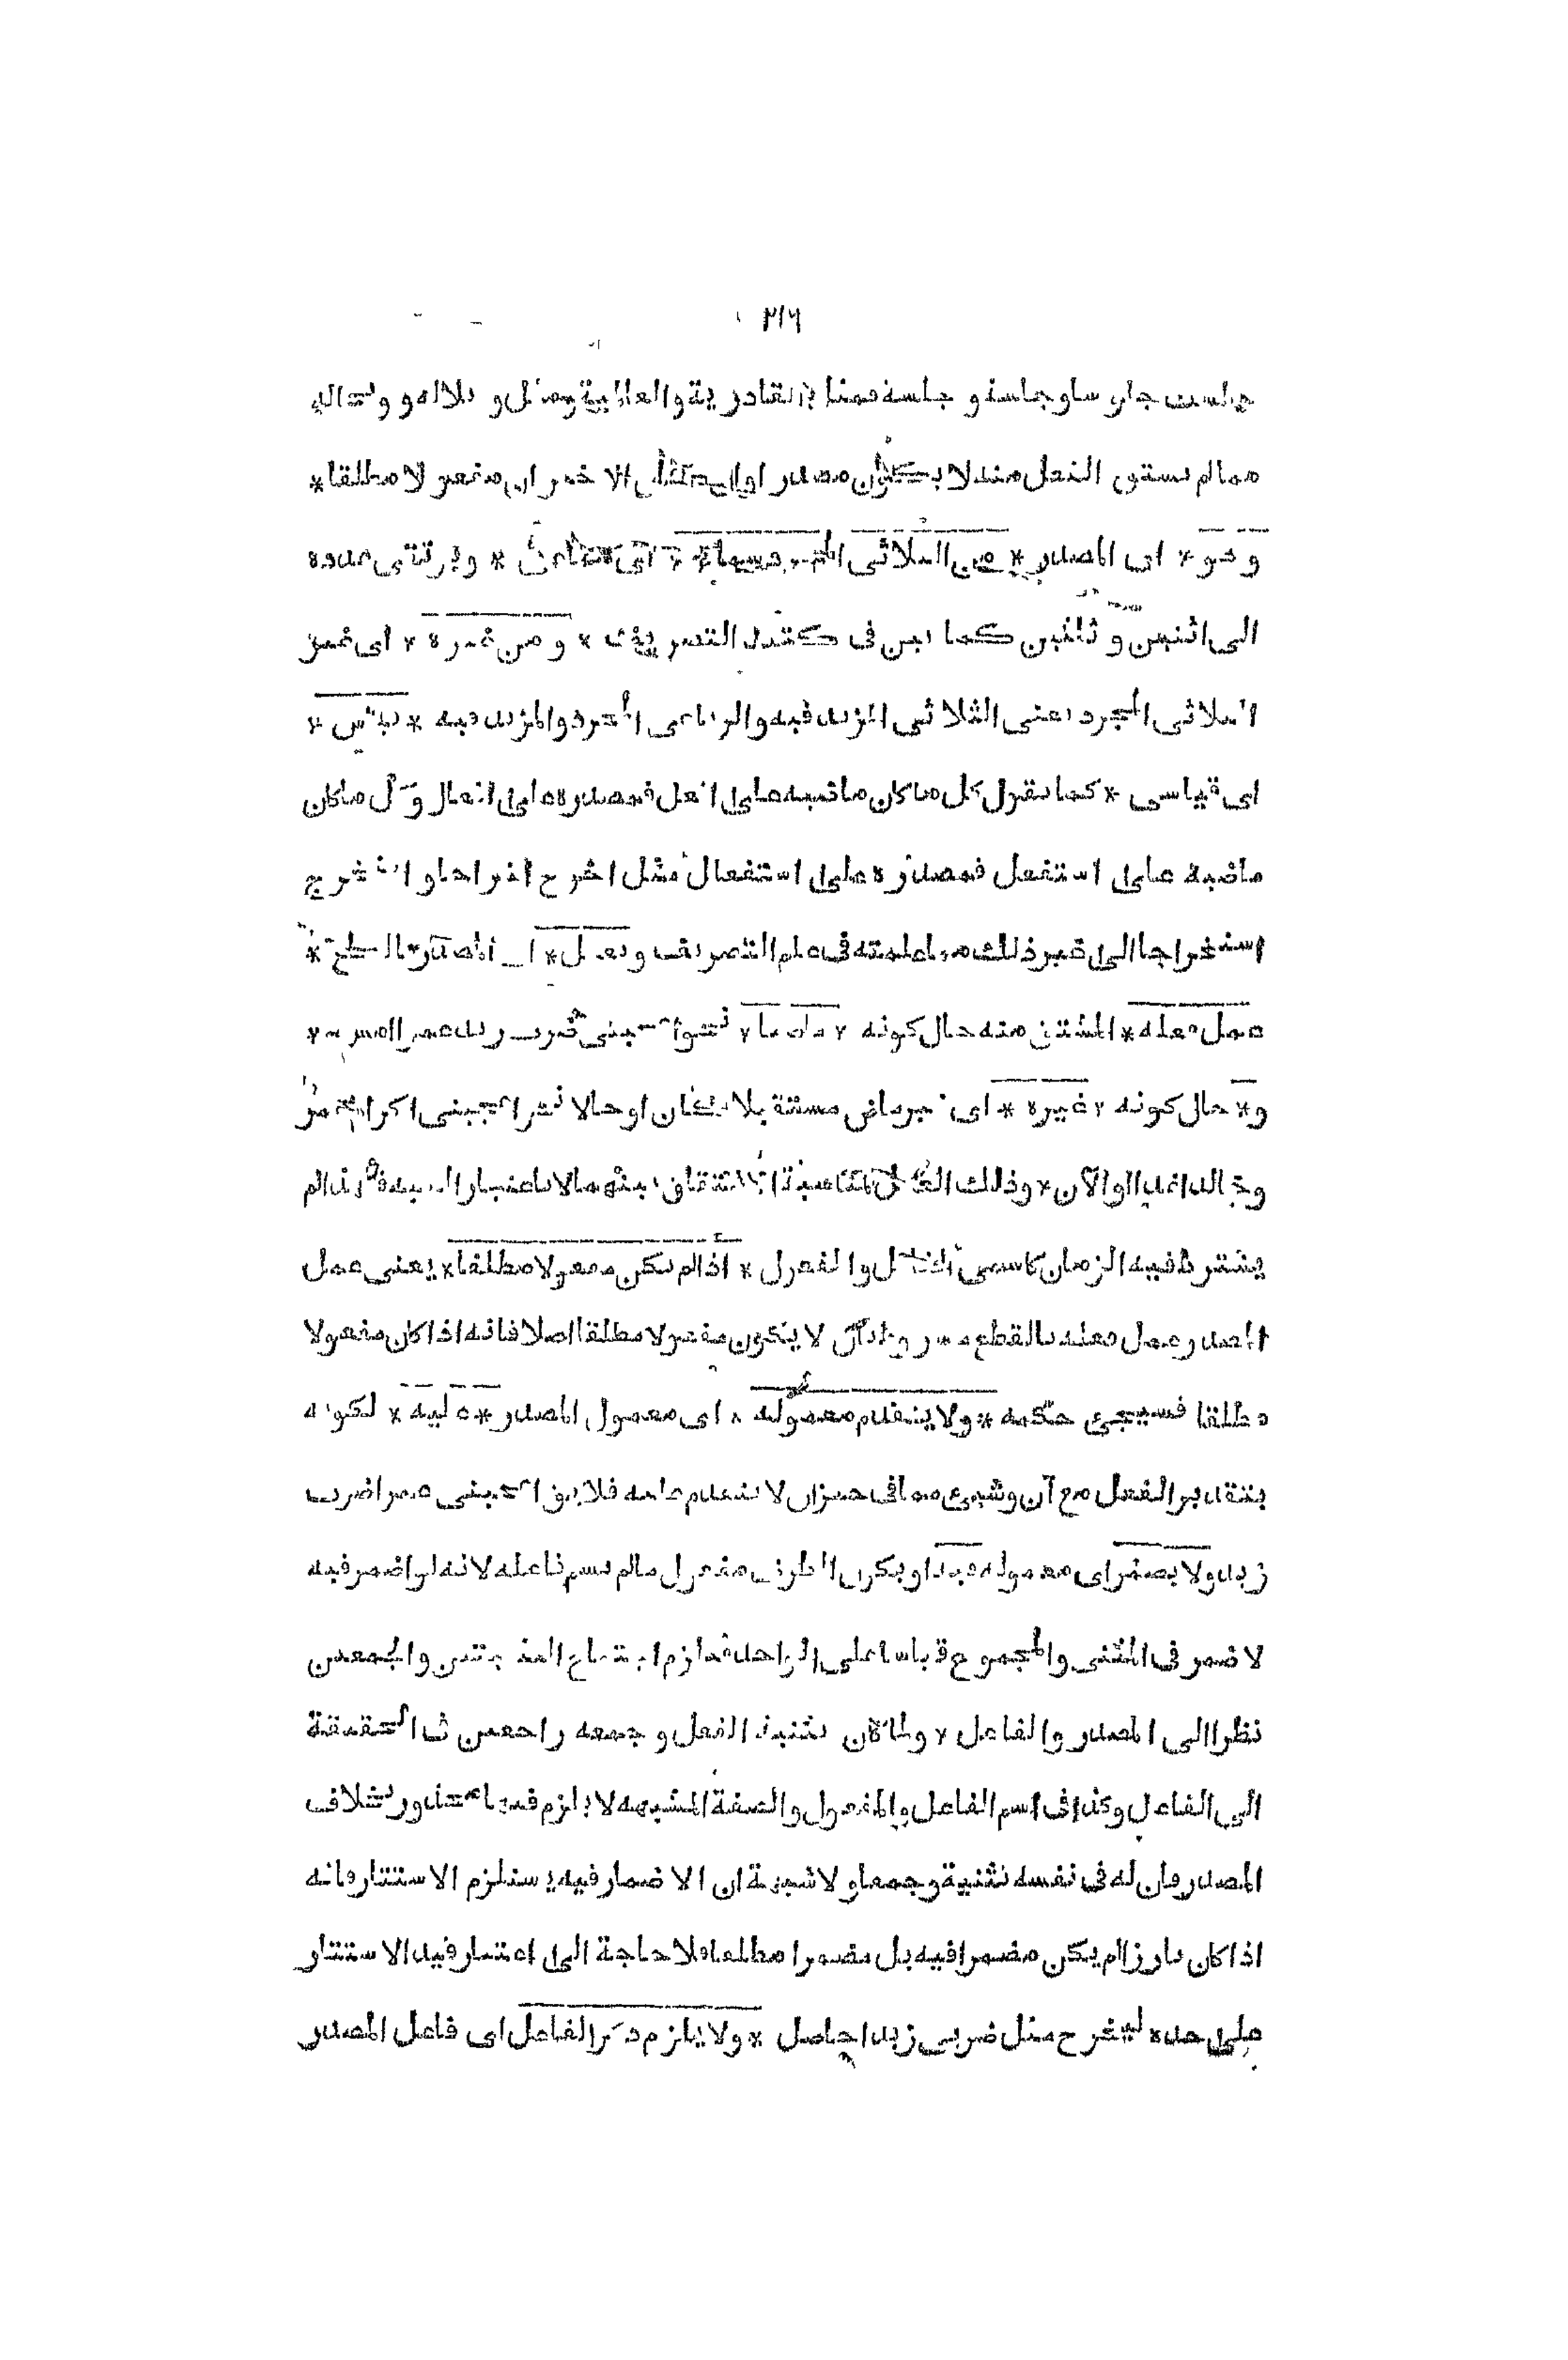 ٣١٦
جلست جلوسا وجلسة و جلسة فمثل القادرية والعالمية ومثل ويلا له و ويحاله
مما لم يشتق الفعل منه لا يكون مصدرا وان الاخيران مفعولا مطلقا*
وهو * اى المصدر * من الثلاثى المجرد سماع * اى سماعى * ويرتقى عدده
الى اثنين وثلثين كما بين فى كتب التصريف * ومن غيره * اى غير
الثلاثى المجرد يعنى الثلاثى المزيد فيه والرباعى المجرد والمزيد فيه * قياس *
اى قياسى * كما تقول كل ما كان ماضيه على افعل فمصدره على افعال وكل ما كان
ماضيه على استفعل فمصدره على استفعال مثل اخرج اخراجا واستخرج
استخراجا الى غير ذلك مما علمته فى علم التصريف ويعمل * اى المصدر *
عمل فعله * المشتق منه حال كونه * ماضيا * نحو اعجبنى ضرب زيد عمرا امس *
و* حال كونه * غيره * اى غير ماض مستقبلا كان او حالا نحو اعجبنى اكرام عمرو
خالدا غدا او الآن * وذلك العمل لمناسبة الاشتقاق بينهما لا باعتبار الشبه فلذا لم
يشترط فيه الزمان كاسمى الفاعل والمفعول * اذا لم يكن مفعولا مطلقا * يعنى عمل
المصدر عمل فعله بالقطع لا يكون مفعولا مطلقا اصلا فانه اذا كان مفعولا
مطلقا فسيجئ حكمه * ولا يتقدم معموله * اى معمول المصدر * عليه * لكونه
بتقدير الفعل مع أن وشيئ مما فى حيز ان لا يتقدم عليه فلا يق اعجبنى عمرا ضرب
زيد ولا يضمر اى معموله فيه او يكون الظرف مفعول ما لم يسم فاعله لانه لو اضمر فيه
لاضمر فى المثنى والمجموع قياسا على الواحد فيلزم اجتماع التثنيتين والجمعين
نظرا الى المصدر والفاعل * ولما كان تثنية الفعل وجمعه راجعين فى الحقيقة
الى الفاعل وكذا فى اسم الفاعل والمفعول والصفة المشبهه لا يلزم فيها محذور بخلاف
المصدر فان له فى نفسه تثنية وجمعا ولا شبهة ان الاضمار فيه يستلزم الاستتار فانه
اذا كان بارزا لم يكن مضمرا فيه بل مضمرا مطلقا فلا حاجة الى اعتبار قيد الاستتار
على حده ليخرج مثل ضربى زيدا حاصل * ولا يلزم ذكر الفاعل اى فاعل المصدر